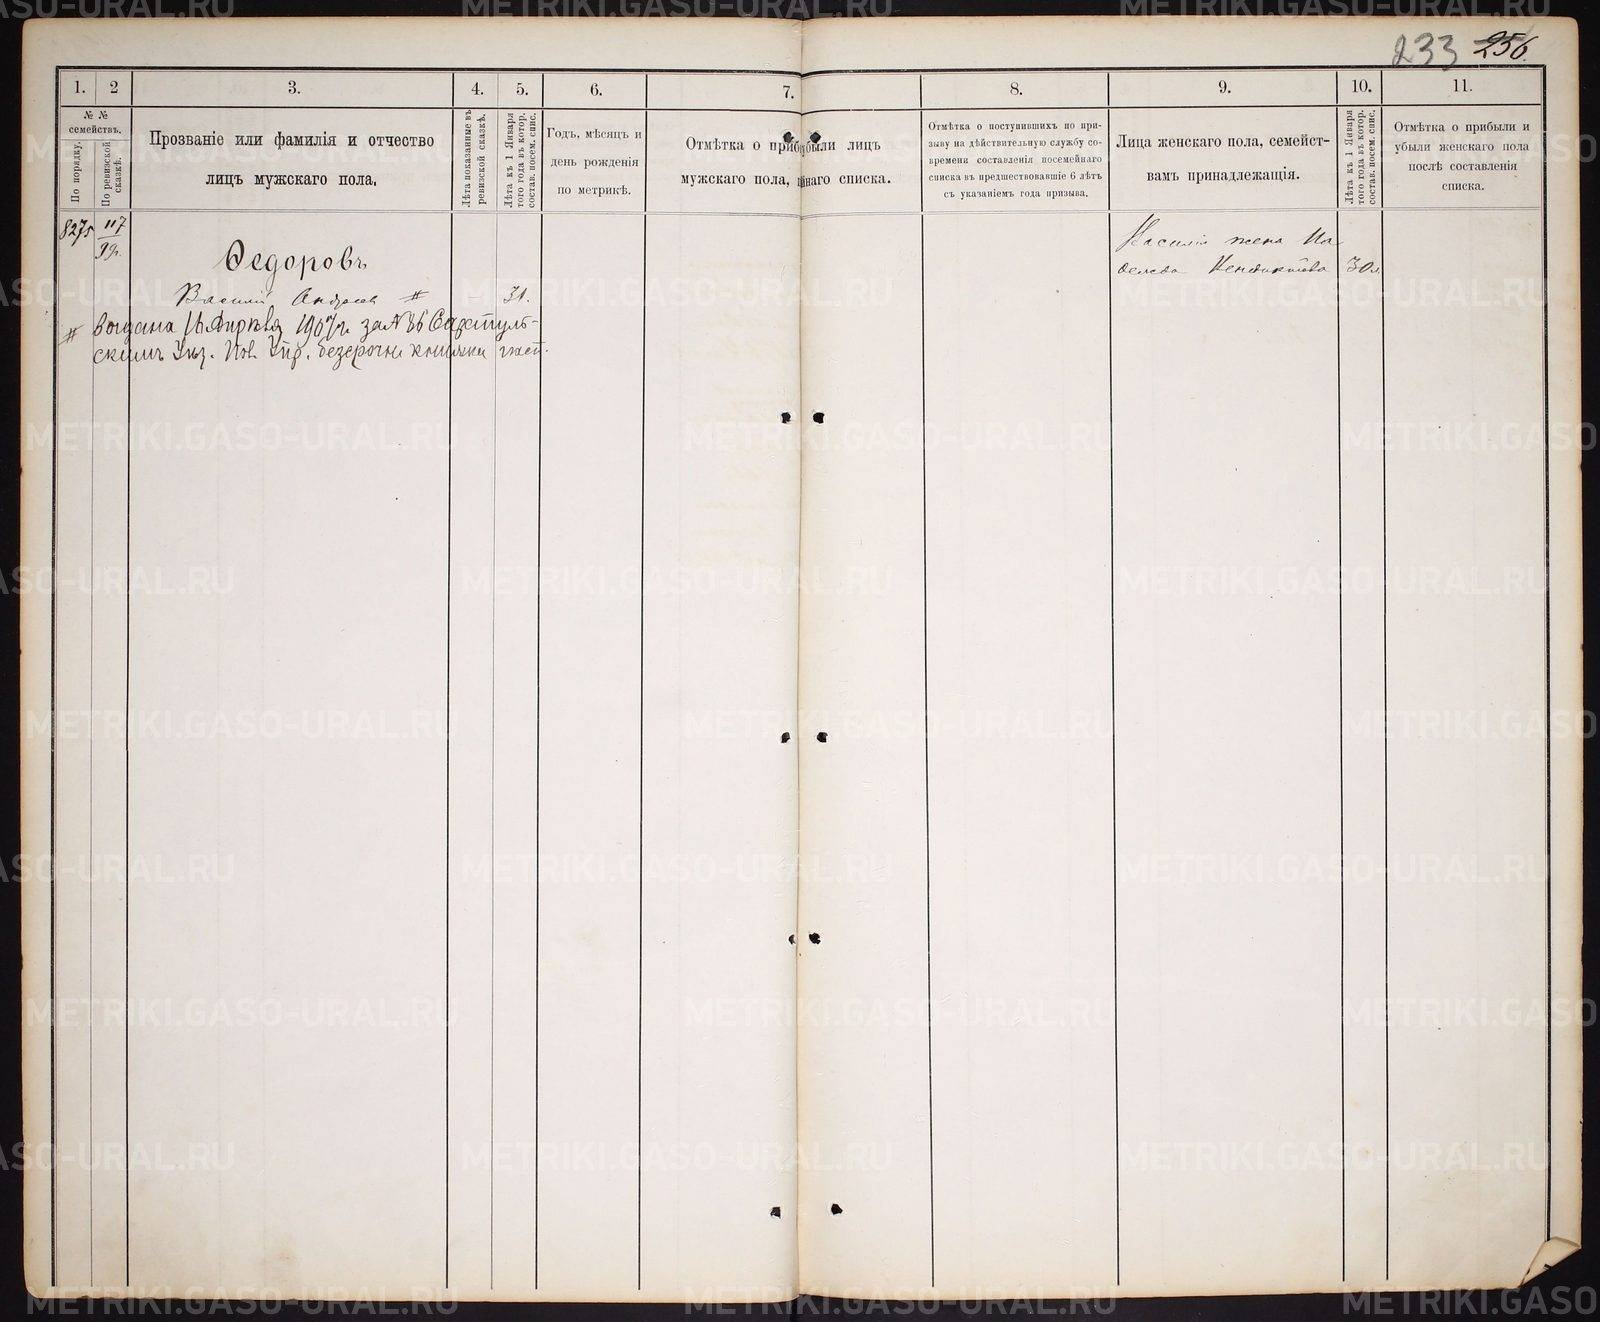 233 256.
1. 2 3. 4. 5. 6. 7. 8. 9. 10. 11.
№ №
семействъ.
По порядку.
По ревизской сказкѣ.
Прозваніе или фамилія и отчество
лицъ мужскаго пола.
Лѣта показанные въ
ревизской сказкѣ.
Лѣта къ 1 Января
того года въ котор.
состав. посем. спис.
Годъ, мѣсяцъ и
день рожденія
по метрикѣ.
Отмѣтка о прибыли лицъ
мужскаго пола, наго списка.
Отмѣтка о поступившихъ по при-
зыву на дѣйствительную службу со-
времени составленія посемейнаго
списка въ предшествовавшіе 6 лѣтъ
съ указаніемъ года призыва.
Лица женскаго пола, семейст-
вамъ принадлежащія.
Лѣта къ 1 Января
того года въ котор.
состав. посем. спис.
Отмѣтка о прибыли и
убыли женскаго пола
послѣ составленія
списка.
8275 117
Ѳедоровъ
Василій Андреев # 31.
# 1907г. за №
безсрочн книжка
Василія жена Па
30л.
METRIKI.GASO-URAL.RU